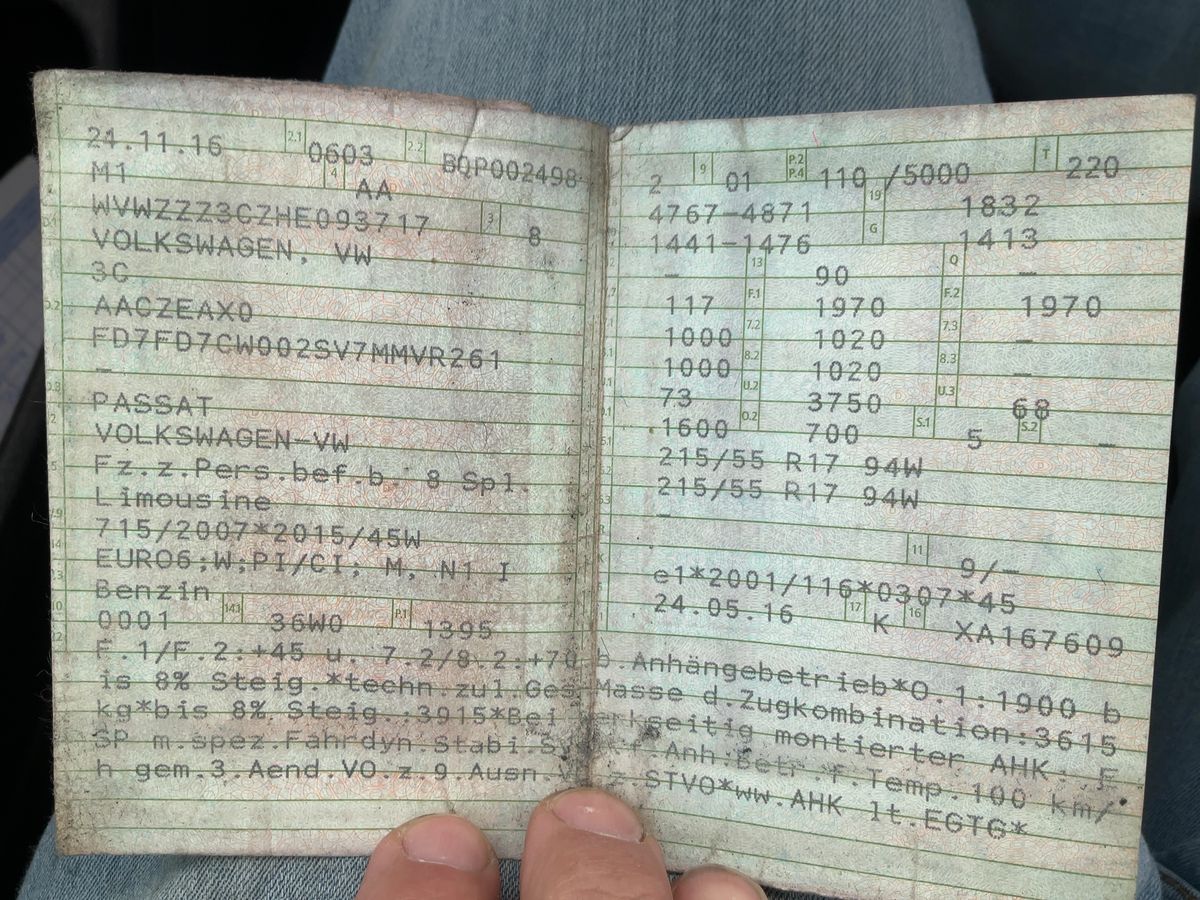 24.11.16 2.1 0603 2.2 BQP002498
M1 4 AA
WVWZZZ3CZHE093717 3 8
VOLKSWAGEN, VW
3C
AACZEAX0
FD7FD7CW002SV7MMVR261
–
PASSAT
VOLKSWAGEN-VW
Fz.z.Pers.bef.b. 8 Spl.
Limousine
715/2007*2015/45W
EURO6;W;PI/CI; M, N1 I
Benzin
0001 14.1 36W0 P.1 1395
2 9 01 P.2 P.4 110 /5000 T 220
4767-4871 19 1832
1441-1476 G 1413
– 13 90 Q –
117 F.1 1970 F.2 1970
1000 7.2 1020 7.3 –
1000 8.2 1020 8.3 –
73 U.2 3750 U.3 68
1600 O.2 700 S.1 5 S.2 –
215/55 R17 94W
215/55 R17 94W
–
11 9/–
e1*2001/116*0307*45
24.05.16 17 K 16 XA167609
F.1/F.2:+45 u. 7.2/8.2:+70 b.Anhängebetrieb*O.1:1900 b
is 8% Steig.*techn.zul.Ges.Masse d.Zugkombination:3615
kg*bis 8% Steig.:3915*Bei seitig montierter AHK:
SP m.spez.Fahrdyn.Stabi.S. Anh.Betr.f.Temp.100 km/
h gem.3.Aend.VO.z.9.Ausn. STVO*ww.AHK lt.EGTG*